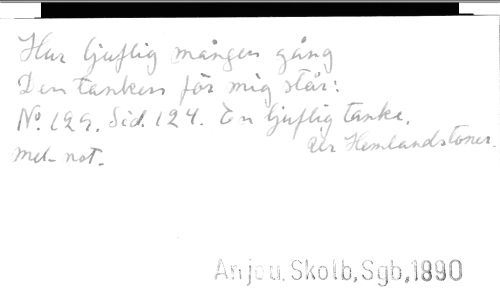 Hur ljuflig mången gång
Den tanken för mig står:
No. 129. Sid. 124. En ljuflig tanke.
Ur Hemlandstoner.
mel. not.
Anjou, Skolb, Sgb, 1890